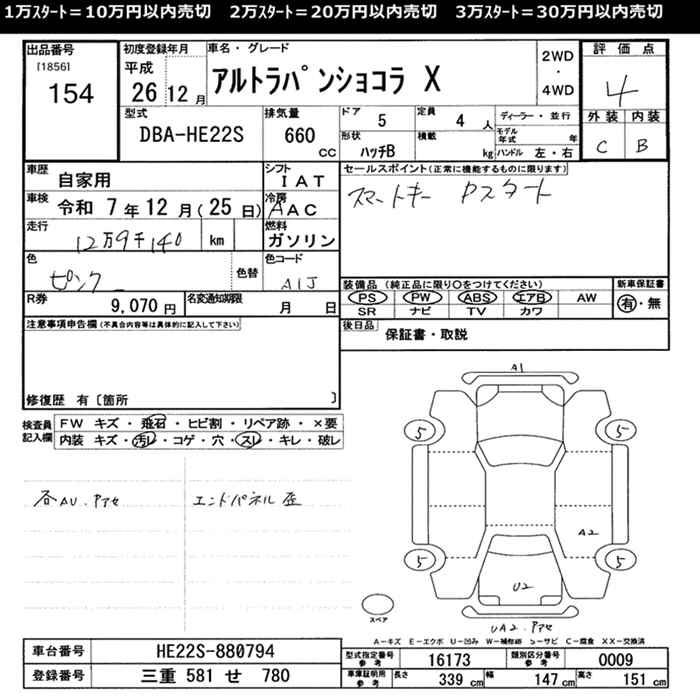 1万スタート=10万円以内売切　2万スタート=20万円以内売切　3万スタート=30万円以内売切
出品番号
[1856]
154
初度登録年月
平成
26 12 月
車名・グレード
アルトラパンショコラ X
2WD
・
4WD
評価点
4
外装 内装
C B
型式
DBA-HE22S
排気量
660 CC
ドア 5
定員 4 人
ディーラー・並行
形状
ハッチB
積載 kg
モデル年式 年
ハンドル 左・右
車歴
自家用
シフト
IAT
車検
令和 7 年 12 月 (25 日)
冷房
AAC
走行
12万9千140 km
燃料
ガソリン
色
ピンク
色替
色コード
A1J
R券
9,070 円
名変通知期限
月 日
セールスポイント(正常に機能するものに限ります)
スマートキー Pスタート
装備品 (純正品に限り○をつけてください)
PS PW ABS エアB AW
SR ナビ TV カワ
新車保証書
有・無
後日品
保証書・取説
注意事項申告欄(不具合内容等は具体的に記入して下さい)
修復歴 有〔箇所 〕
検査員記入欄
FW キズ・飛石・ヒビ割・リペア跡・×要
内装 キズ・汚レ・コゲ・穴・スレ・キレ・破レ
各AU.Pアセ
エンドパネル歪
A1
5 5
A2
5 5
U2
スペア
UA2.Pアセ
A-キズ E-エクボ U-凹み W-補修跡 S-サビ C-腐食 XX-交換済
車台番号
HE22S-880794
登録番号
三重 581 せ 780
型式指定番号参考
16173
類別区分番号参考
0009
車庫証明用参考
長さ 339 cm
幅 147 cm
高さ 151 cm